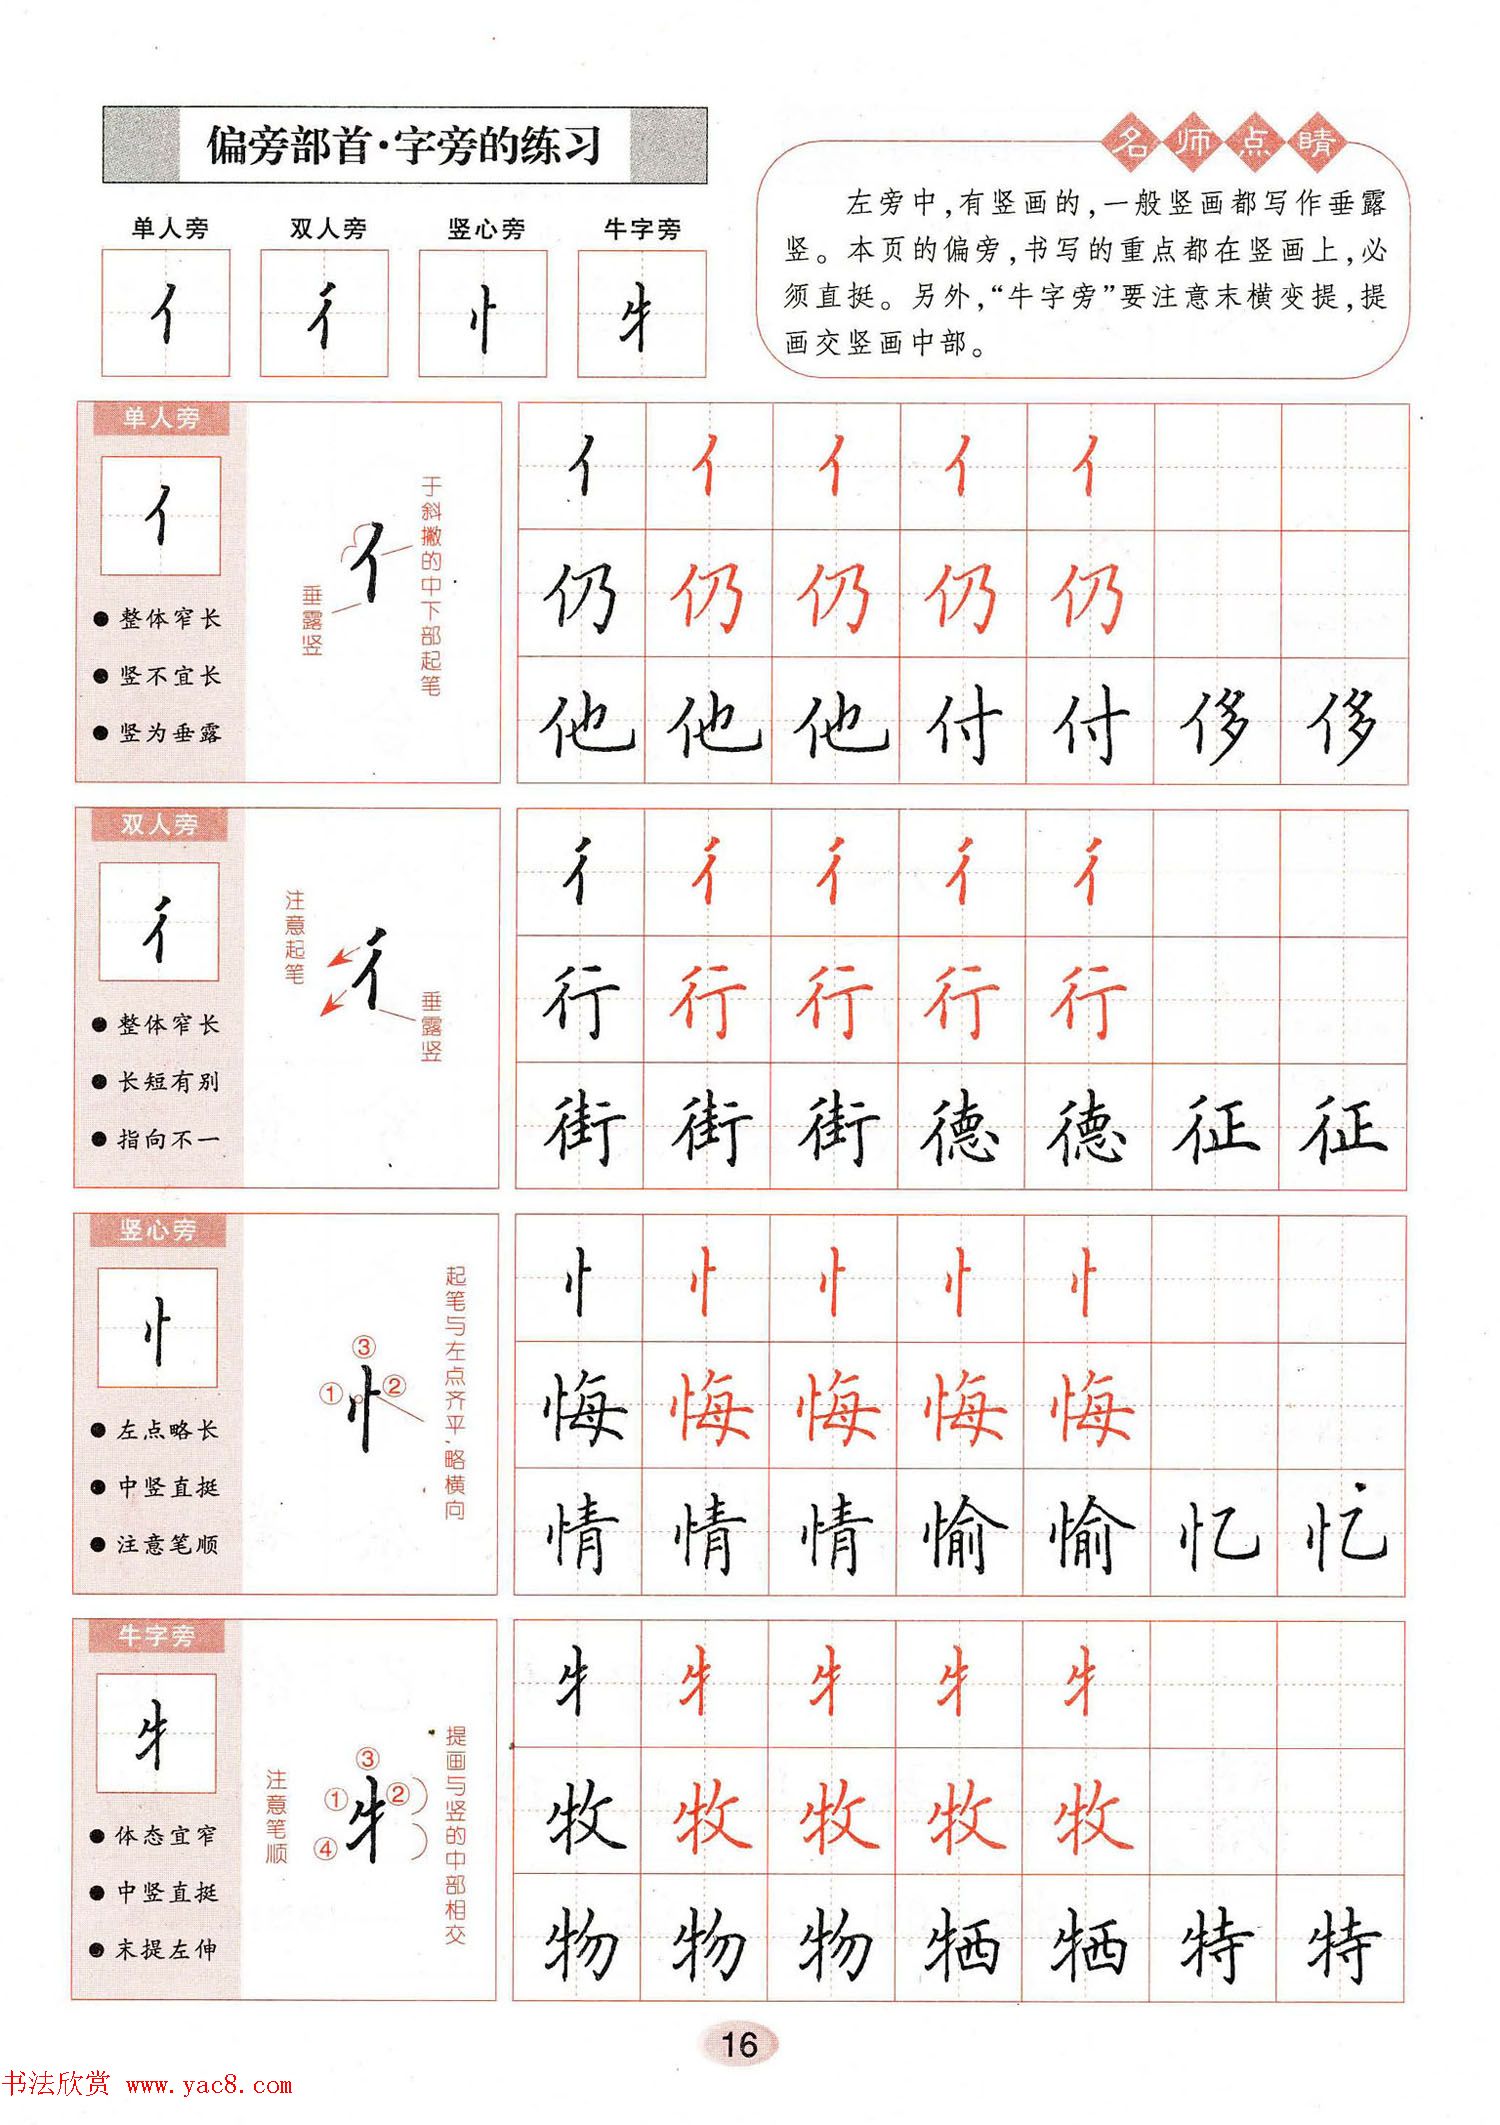 偏旁部首·字旁的练习
名师点睛
左旁中,有竖画的,一般竖画都写作垂露
竖。本页的偏旁,书写的重点都在竖画上,必
须直挺。另外,“牛字旁”要注意末横变提,提
画交竖画中部。
单人旁 双人旁 竖心旁 牛字旁
亻 彳 忄 牜
单人旁
亻
●整体窄长
●竖不宜长
●竖为垂露
亻
垂露竖
于斜撇的中下部起笔
亻 亻 亻 亻 亻
仍 仍 仍 仍 仍
他 他 他 付 付 侈 侈
双人旁
彳
●整体窄长
●长短有别
●指向不一
注意起笔
彳
垂露竖
彳 彳 彳 彳 彳
行 行 行 行 行
街 街 街 德 德 征 征
竖心旁
忄
●左点略长
●中竖直挺
●注意笔顺
③
① 忄 ②
起笔与左点齐平,略横向
忄 忄 忄 忄 忄
悔 悔 悔 悔 悔
情 情 情 愉 愉 忆 忆
牛字旁
牜
●体态宜窄
●中竖直挺
●末提左伸
注意笔顺
③
① 牜 ②
④
提画与竖的中部相交
牜 牜 牜 牜 牜
牧 牧 牧 牧 牧
物 物 物 牺 牺 特 特
16
书法欣赏 www.yac8.com